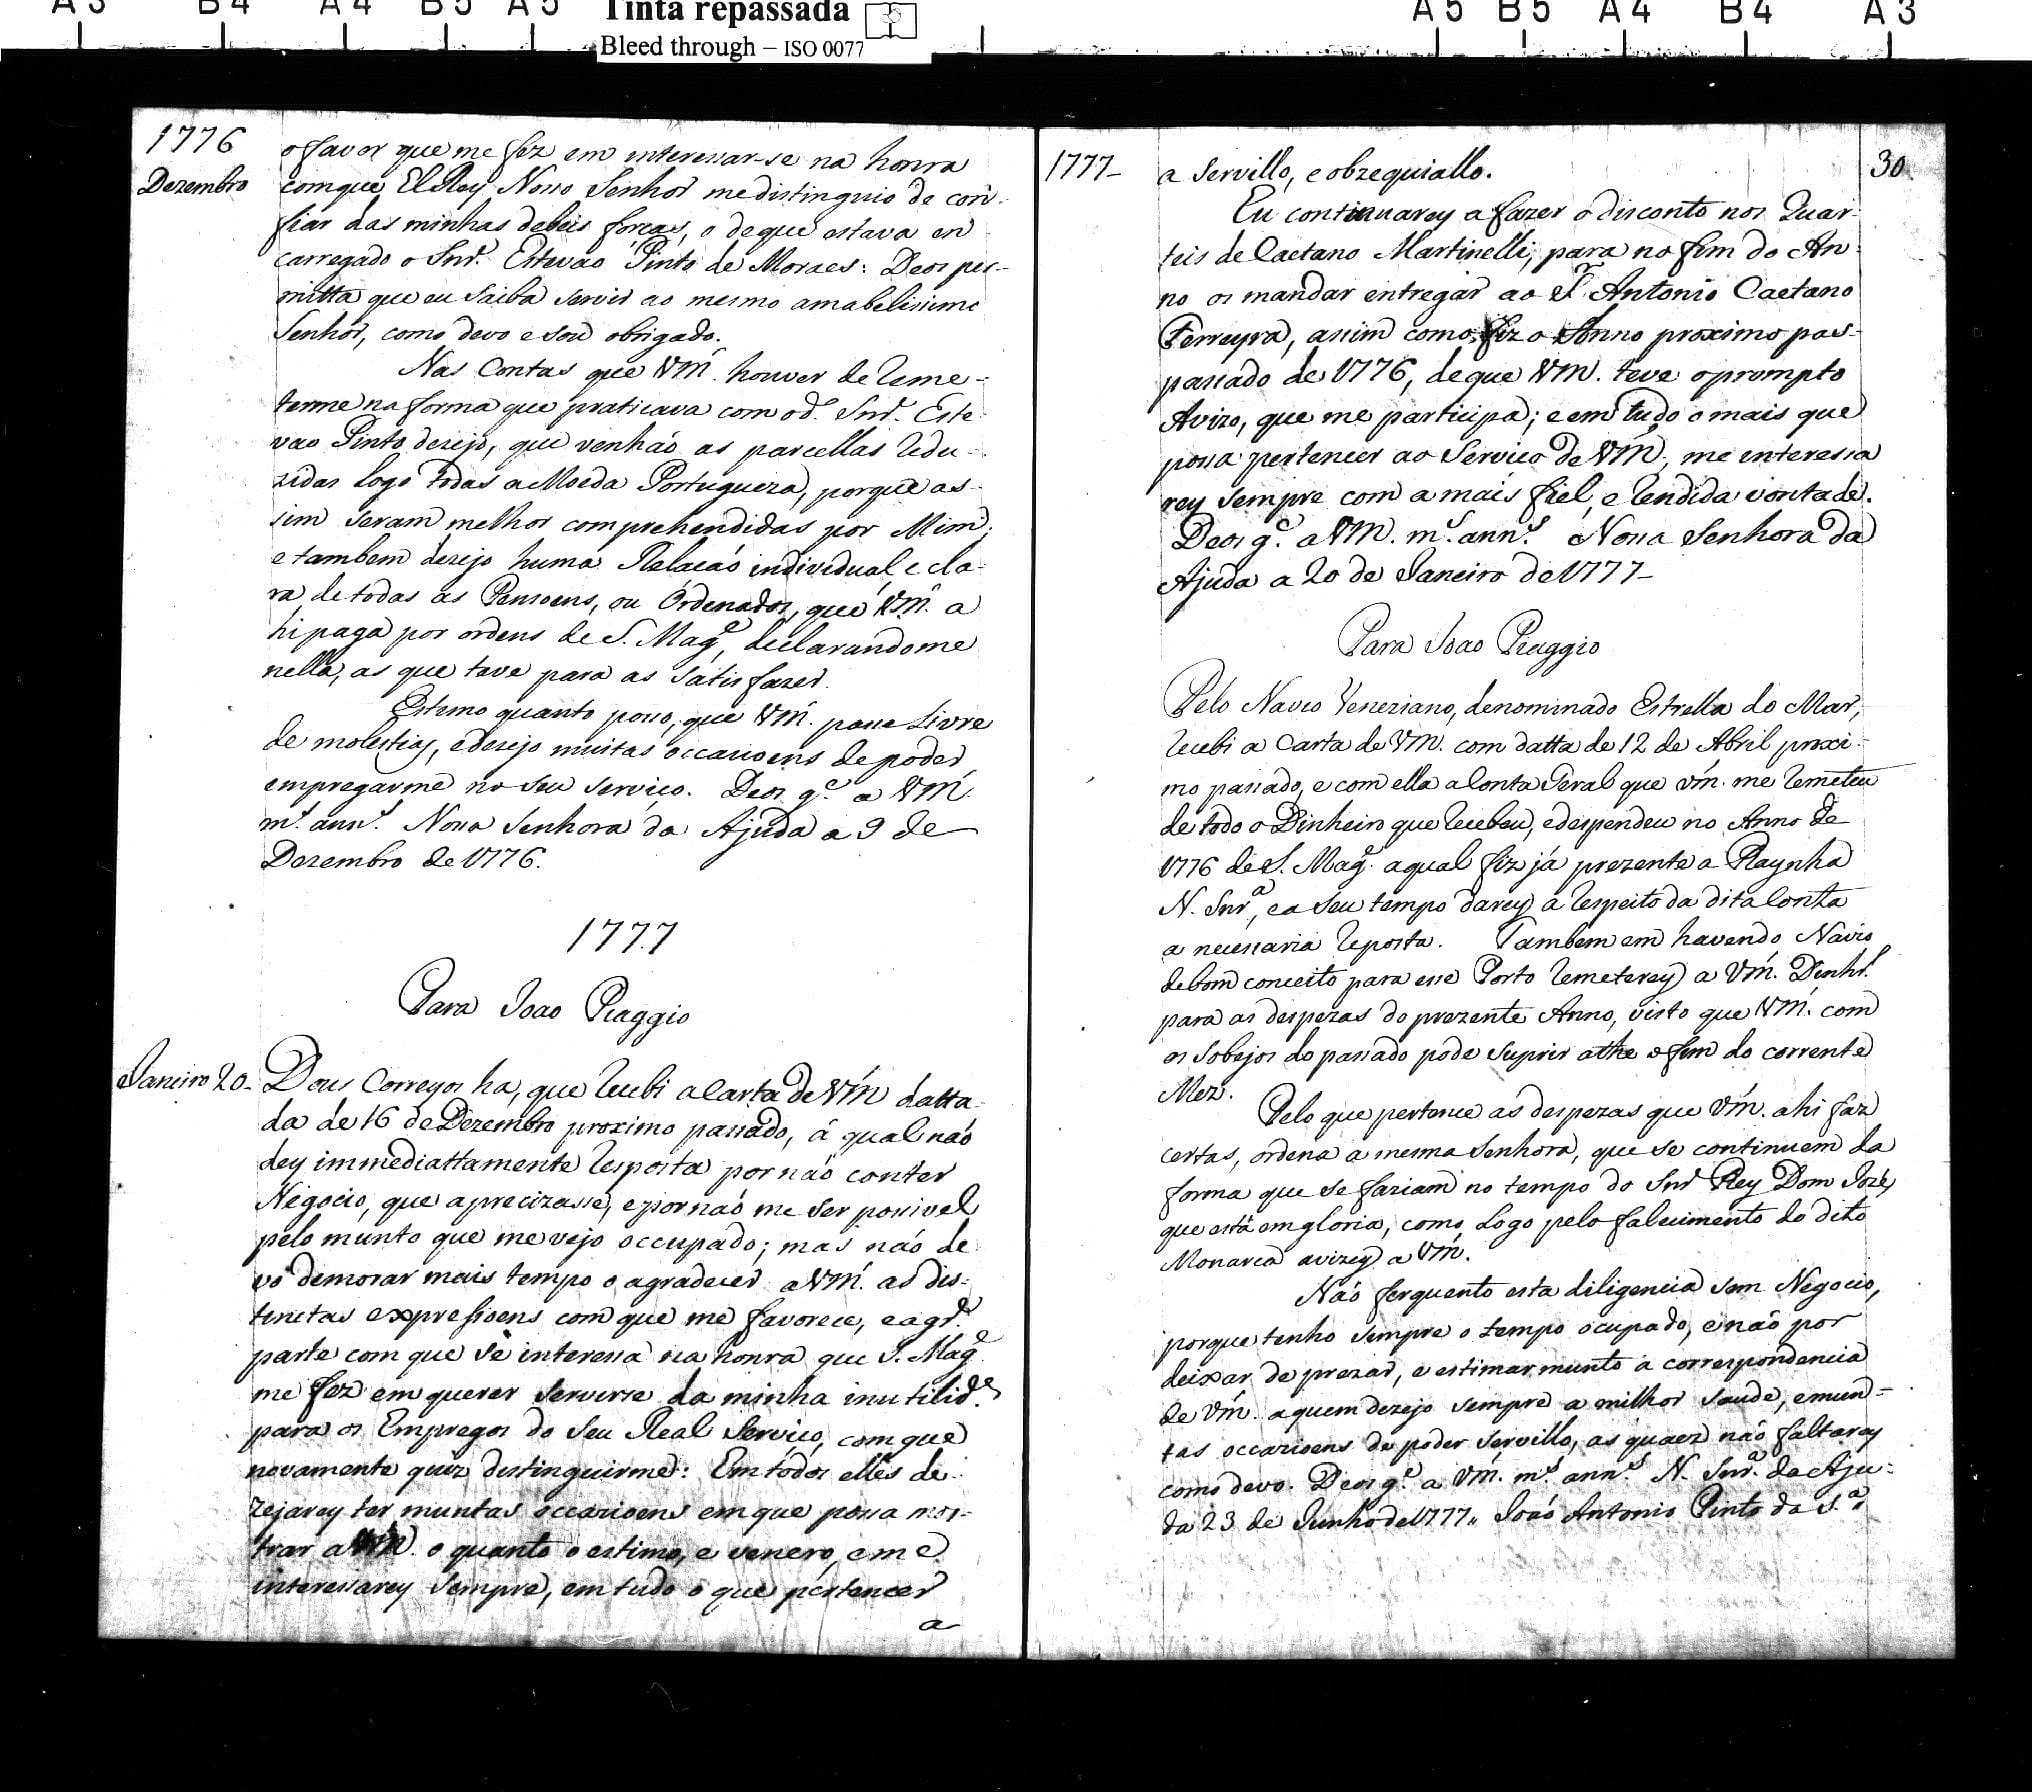 A3 B4 A4 B5 A5 Tinta repassada A5 B5 A4 B4 A3
Bleed through – ISO 0077
1776
Dezembro
o favor que me fez em interessar-se na honra
com que El Rey Nosso Senhor me distinguio de con-
fiar das minhas debeis forças, o de que estava en
carregado o Snr. Estevaõ Pinto de Moraes: Deos per-
mitta que eu saiba servir ao mesmo amabelissimo
Senhor, como devo e sou obrigado.
Nas Contas que VM. houver de reme-
terme na forma que praticava com o d.º Snr. Este-
vao Pinto dezejo, que venhaõ as parcellas redu-
zidas logo todas a Moeda Portugueza, porque as-
sim seram melhor comprehendidas por Mim;
e tambem dezejo huma Relacaõ individual e cla-
ra de todas as Pensoens, ou Ordenados, que VM. a
hi paga por ordens de S. Mag.e, declarandome
nella, as que teve para as satisfazer.
Estimo quanto posso, que VM. passe Livre
de molestias, e dezejo muitas occazioens de poder
empregarme no seu serviço. Deos g.e a VM.
m.s ann.s Nossa Senhora da Ajuda a 9 de
Dezembro de 1776.
1777
Para Joao Piaggio
Janeiro 20-
Dous Correyos ha, que recebi a Carta de VM datta-
da de 16 de Dezembro proximo passado, á qual naõ
dey immediattamente resposta por naõ conter
Negocio, que a precizasse, e por naõ me ser possivel
pelo munto que me vejo occupado; mas naõ de
vo demorar mais tempo o agradecer a VM. as dis-
tinctas expressoens com que me favorece, e a gr.de
parte com que se interessa na honra que S. Mag.e
me fez em querer servirse da minha inutilid.e
para os Empregos do Seu Real Serviço, com que
novamente quiz destinguirme: Em todos elles de-
zejarey ter muntas occazioens em que possa mos-
trar a VM. o quanto o estimo, e venero, e me
interessarey sempre, em tudo o que pertencer
a
1777-
30
a Servillo, e obzequiallo.
Eu continuarey a fazer o disconto nos Quar-
teis de Caetano Martinelli, para no fim do An-
no os mandar entregar ao S.r Antonio Caetano
Ferreyra, assim como fiz o Anno proximo pas-
passado de 1776, de que VM. teve o prompto
Avizo, que me participa; e em tudo o mais que
possa pertencer ao Servico de VM., me interessa
rey sempre com a mais fiel, e rendida vontade.
Deos g.e a VM. m.s ann.s Nossa Senhora da
Ajuda a 20 de Janeiro de 1777-
Para Joao Piaggio
Pelo Navio Veneziano, denominado Estrella do Mar,
recebi a Carta de VM. com datta de 12 de Abril proxi-
mo passado, e com ella a Conta Geral que Vm. me remeteu
de todo o Dinheiro que recebeu, e despendeu no Anno de
1776 de S. Mag.e a qual fiz já prezente a Raynha
N. Snr.a, e a seu tempo darey a respeito da dita Conta
a necessaria reposta. Tambem em havendo Navio
de bom conceito para esse Porto remeterey a Vm. Dinhr.o
para as despezas do prezente Anno, visto que VM. com
os sobejos do passado pode suprir athe o fim do corrente
Mez.
Pelo que pertence as despezas que Vm. ahi faz
certas, ordena a mesma Senhora, que se continuem da
forma que se faziam no tempo do Snr Rey Dom Jozé,
que está em gloria, como logo pelo falecimento do dito
Monarca avizey a VM.
Náo ferquento esta diligencia sem Negocio,
porque tenho sempre o tempo ocupado, e não por
deixar de prezar, e estimar munto a correspondencia
de Vm. a quem dezejo sempre a milhor saude, e mun-
tas occazioens de poder servillo, as quaez não faltarey
como devo. Deos g.e a Vm. m.s ann.s N. Snr.a da Aju-
da 23 de Junho de 1777,, Joaõ Antonio Pinto da S.a